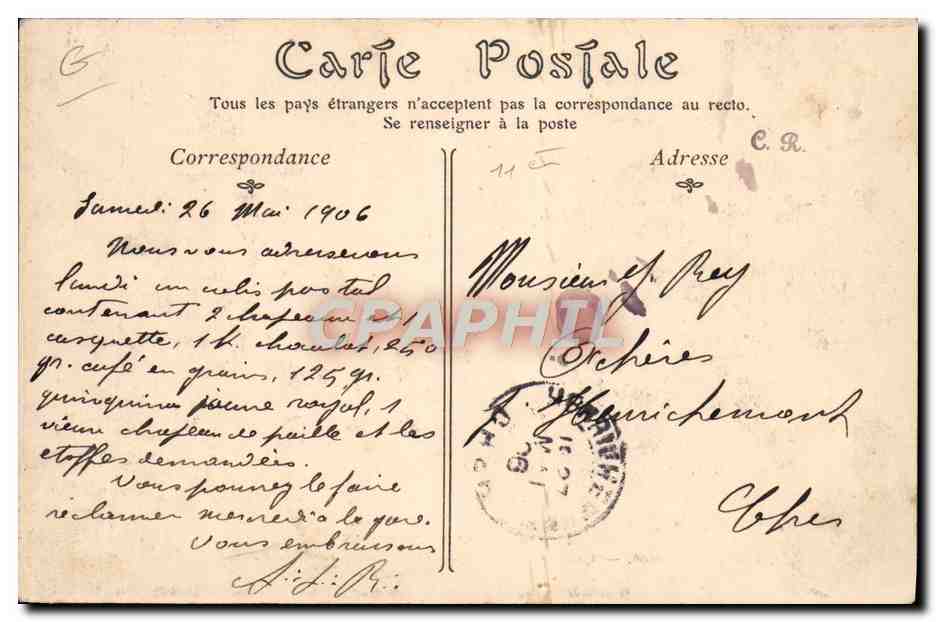 Carte Postale
Tous les pays étrangers n'acceptent pas la correspondance au recto.
Se renseigner à la poste
Correspondance
11
Adresse
C. R.
Samedi 26 Mai 1906
Nous vous adresserons
lundi un colis postal
contenant 2 chapeaux et 1
casquette, 1 k. chocolat, 250
gr. café en grains, 125 gr.
quinquina jaune royal, 1
vieux chapeau de paille et les
étoffes demandées.
Vous pourrez le faire
réclamer mercredi à la gare.
Vous embrassons
Monsieur Rey
Achères
p. Henrichemont
Cher
CPAPHIL